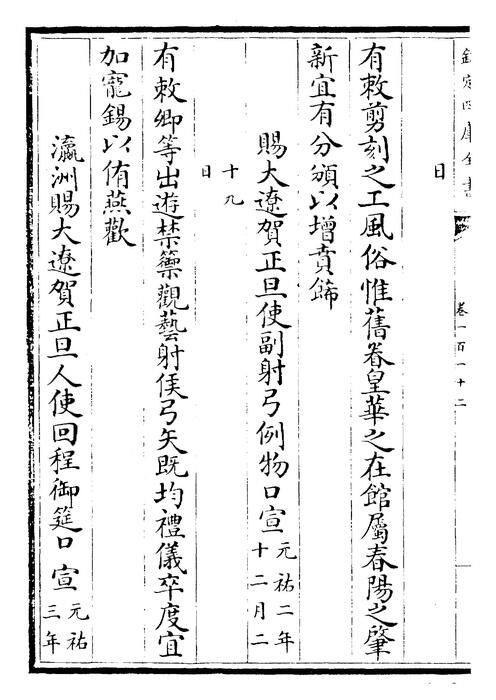 欽定四庫全書
卷一百一十二
日
有敕剪刻之工風俗惟舊眷皇華之在館屬春陽之肇
新宜有分頒以增賁飾
賜大遼賀正旦使副射弓例物口宣元祐二年
十二月二
十九
日
有敕卿等出遊禁籞觀藝射侯弓矢既均禮儀卒度宜
加寵錫以侑燕歡
瀛洲賜大遼賀正旦人使回程御筵口宣元祐
三年